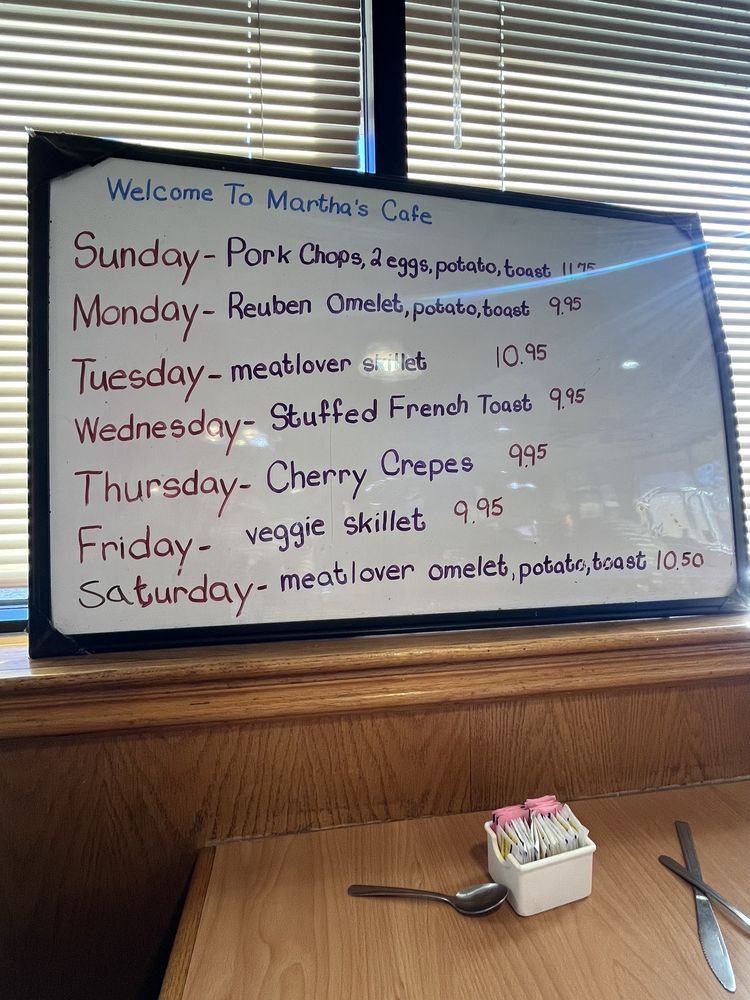 Welcome To Martha's Cafe
Sunday- Pork Chops, 2 eggs, potato, toast 11.75
Monday- Reuben Omelet, potato, toast 9.95
Tuesday- meatlover skillet 10.95
Wednesday- Stuffed French Toast 9.95
Thursday- Cherry Crepes 9.95
Friday- veggie skillet 9.95
Saturday- meatlover omelet, potato, toast 10.50